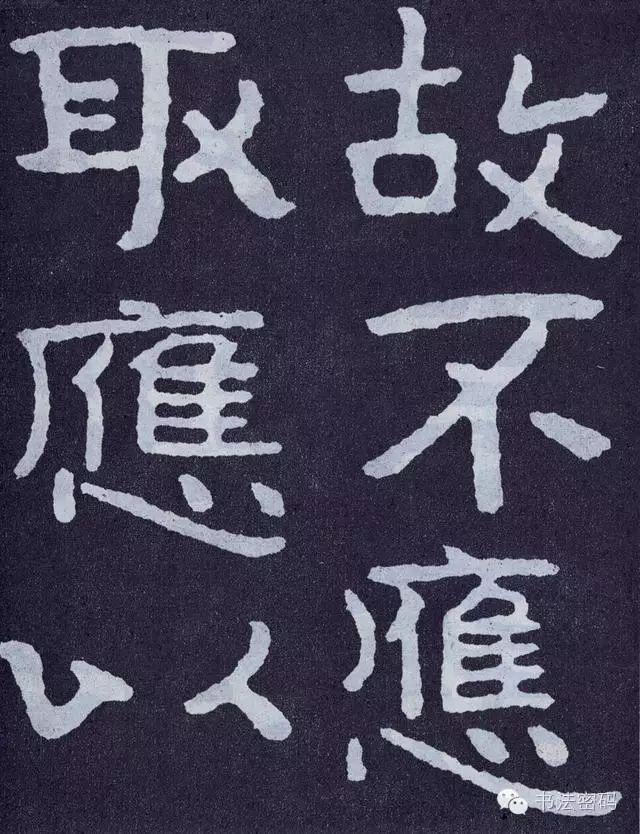 故不應
取應以
书法密码